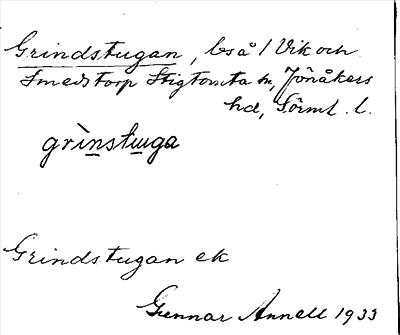 Grindstugan, bså / Vik och
Smedstorp Stigtomta sn, Jönåkers
hd, Sörml. l.
grìnstuga
Grindstugan ek
Gunnar Annell 1933